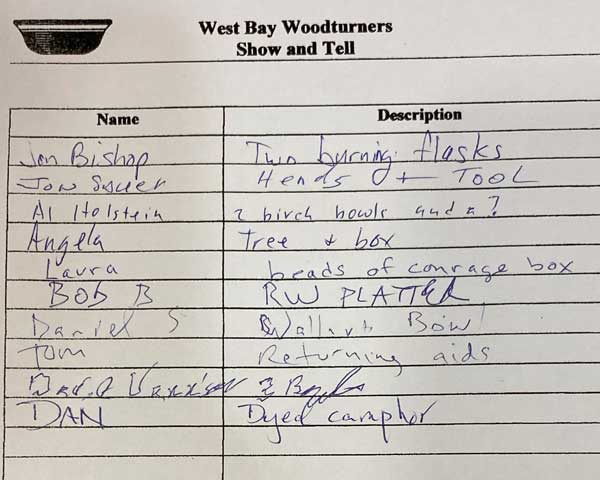 West Bay Woodturners
Show and Tell
Name Description
Jon Bishop Two burning flasks
Jon Sauer + TOOL
Al Holstein 2 birch bowls and a ?
Angela Tree & box
Laura beads of courage box
BOB B RW PLATTER
Daniel S Bowl
Tom Returning aids
DAN Dyed camphor